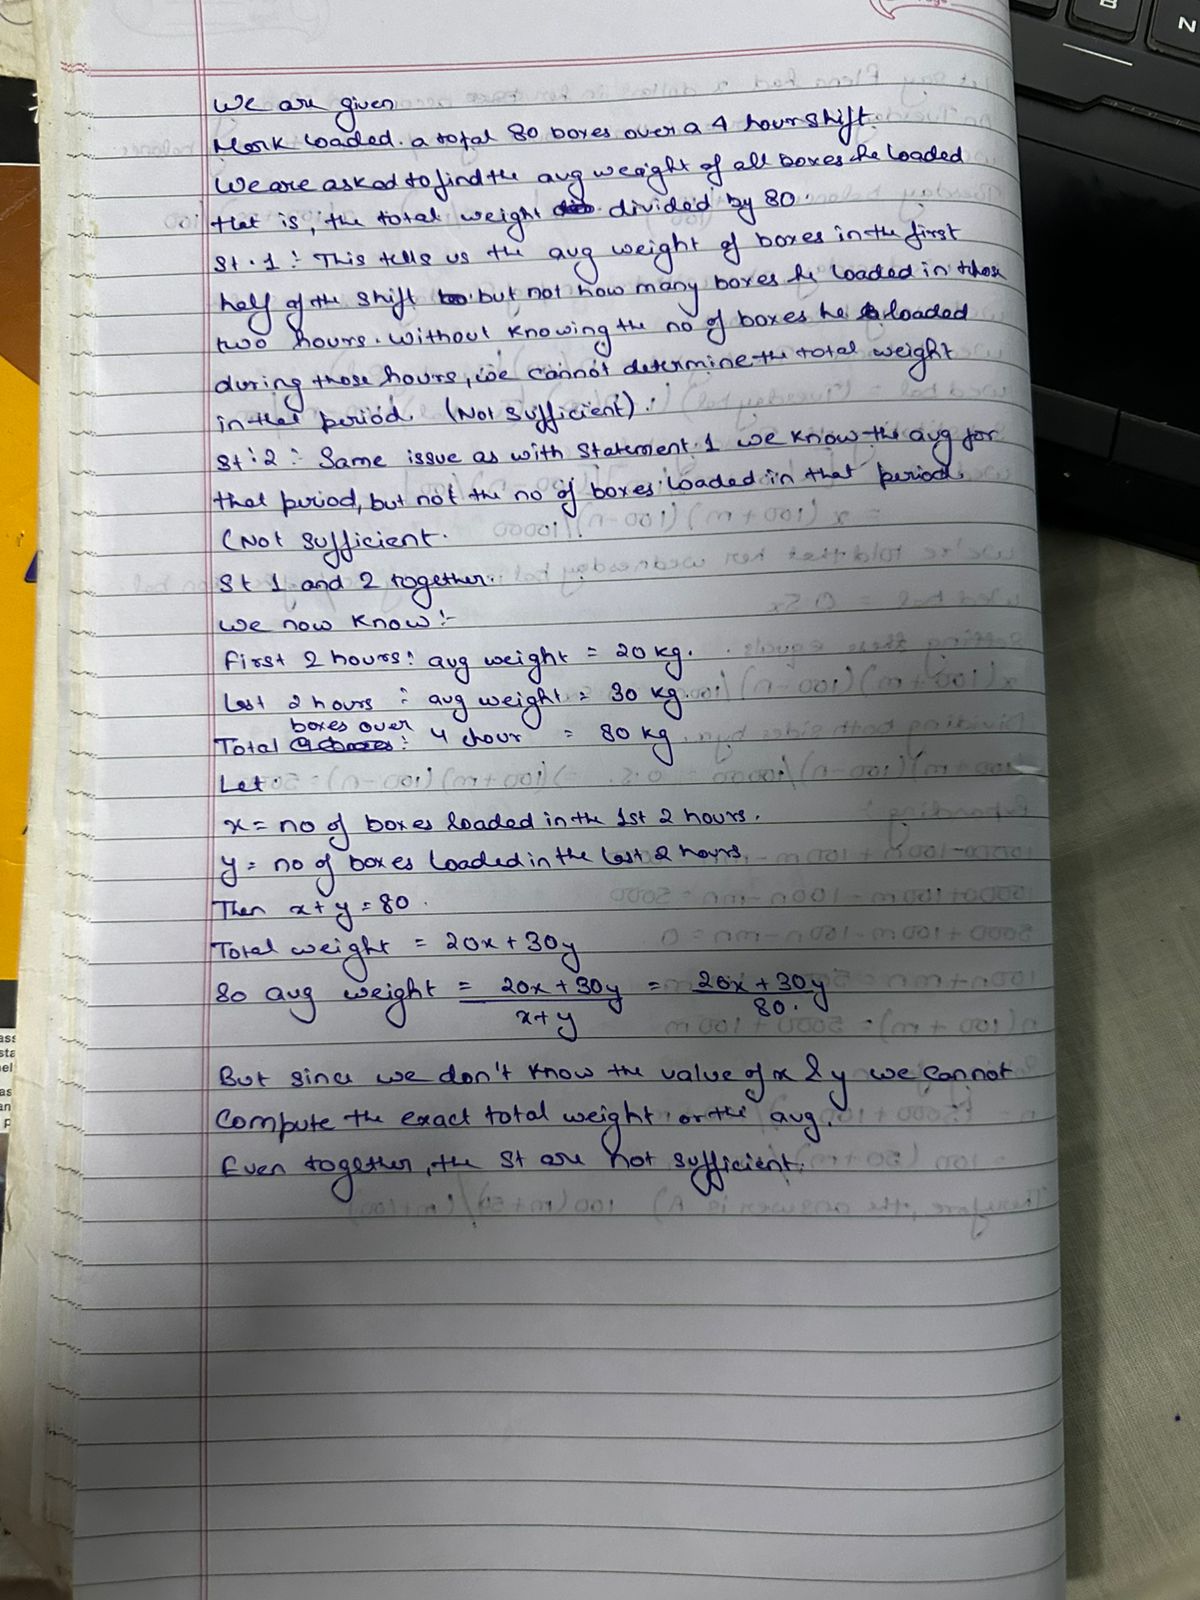 We are given
Mark loaded. a total 80 boxes over a 4 hour shift.
We are asked to find the avg weight of all boxes he loaded
that is, the total weight divided by 80.
St. 1 : This tells us the avg weight of boxes in the first
half of the shift but not how many boxes he loaded in those
two hours. without knowing the no of boxes he loaded
during those hours, we cannot determine the total weight
in that period. (Not sufficient).
St : 2 : Same issue as with Statement. 1 we know the avg for
that period, but not the no of boxes loaded in that period.
(Not sufficient.
St 1 and 2 together.
we now know :-
First 2 hours : avg weight = 20 kg.
Last 2 hours : avg weight = 30 kg.
Total boxes over : 4 hour = 80 kg
Let
x = no of boxes loaded in the 1st 2 hours.
y = no of boxes loaded in the last 2 hours.
Then x + y = 80.
Total weight = 20x + 30y
So avg weight = 20x + 30y / x + y = 20x + 30y / 80.
But since we don't know the value of x & y we cannot
compute the exact total weight or the avg.
Even together, the St are not sufficient.
N